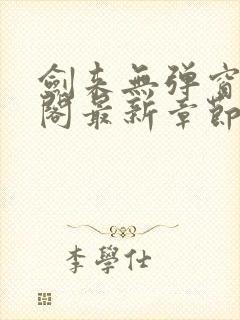 劍来無弹窗
閣最新章節
李學仕